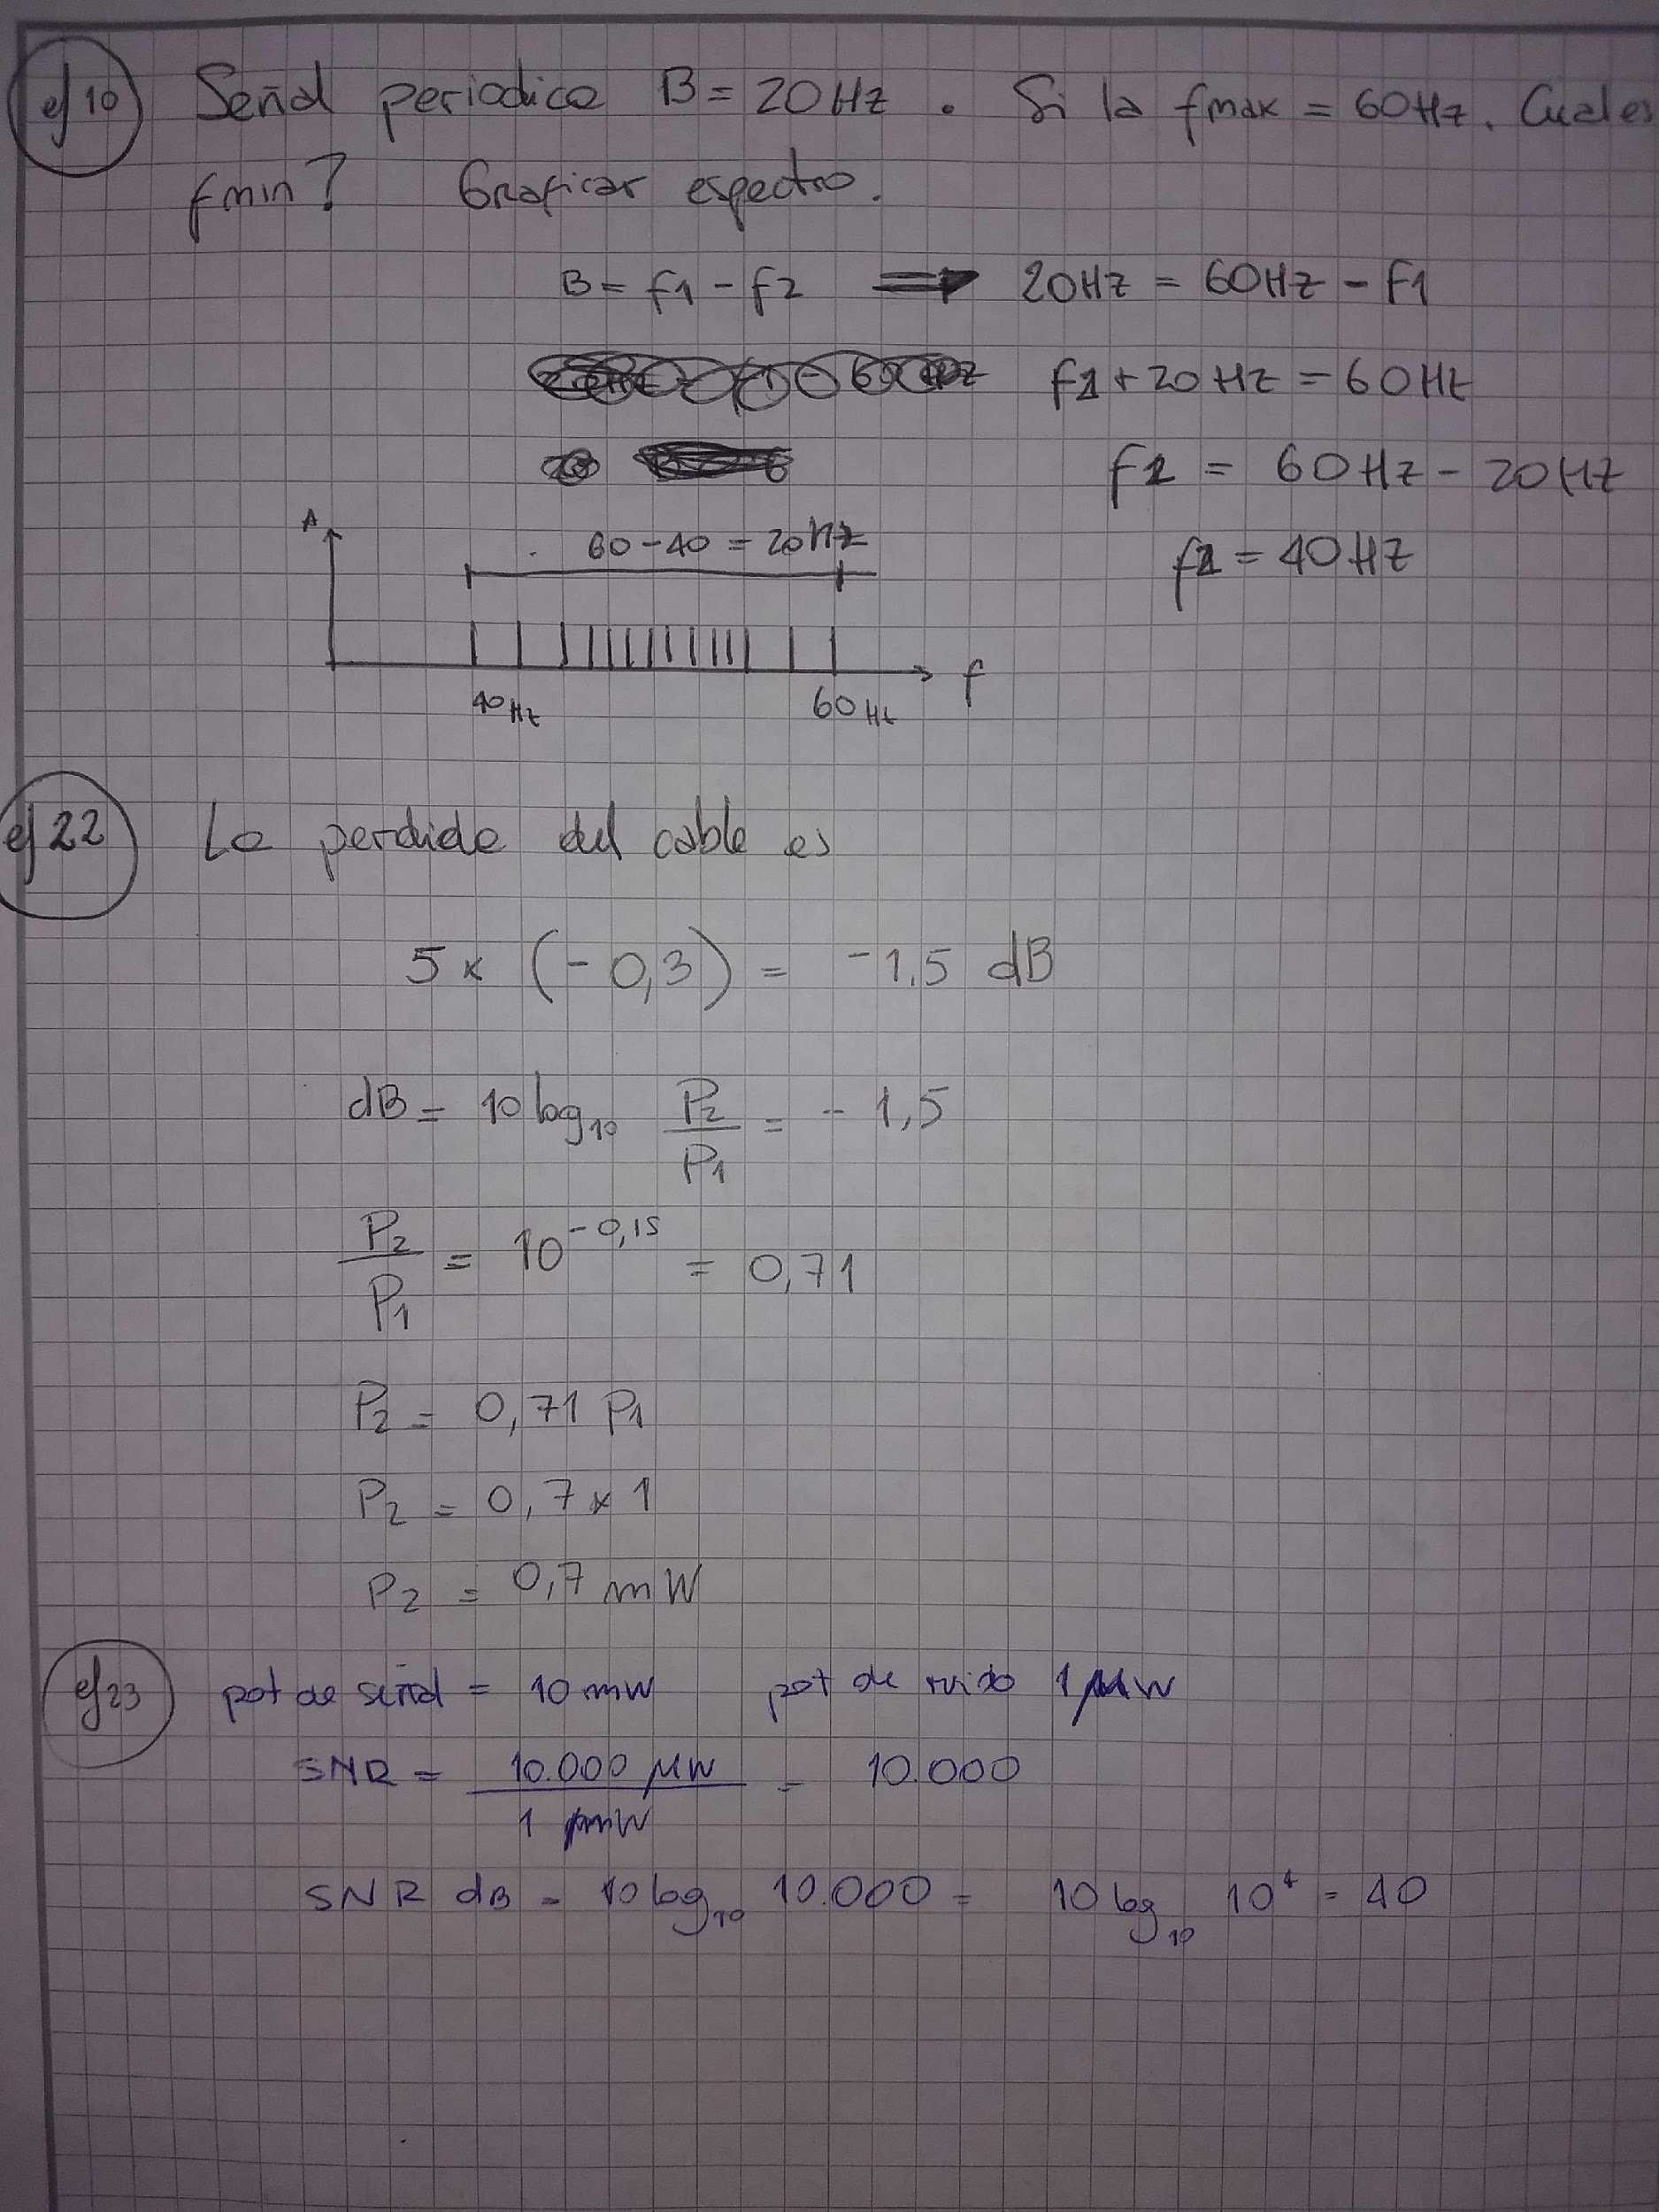 ej 10 Señal periodica B = 20 Hz . Si la fmax = 60 Hz. Cual es
fmin? Graficar espectro.
B = f1 - f2 ⟹ 20 Hz = 60 Hz - f1
f1 + 20 Hz = 60 Hz
f1 = 60 Hz - 20 Hz
f1 = 40 Hz
A
60 - 40 = 20 Hz
f
40 Hz 60 Hz
ej 22 La perdida del cable es
5 x (- 0,3) = -1.5 dB
dB = 10 log10 P2/P1 = - 1,5
P2/P1 = 10^-0,15 = 0,71
P2 = 0,71 P1
P2 = 0,7 x 1
P2 = 0,7 mW
ej 23 pot de señal = 10 mW pot de ruido 1 μW
SNR = 10.000 μW / 1 μW = 10.000
SNR dB = 10 log10 10.000 = 10 log10 10^4 = 40